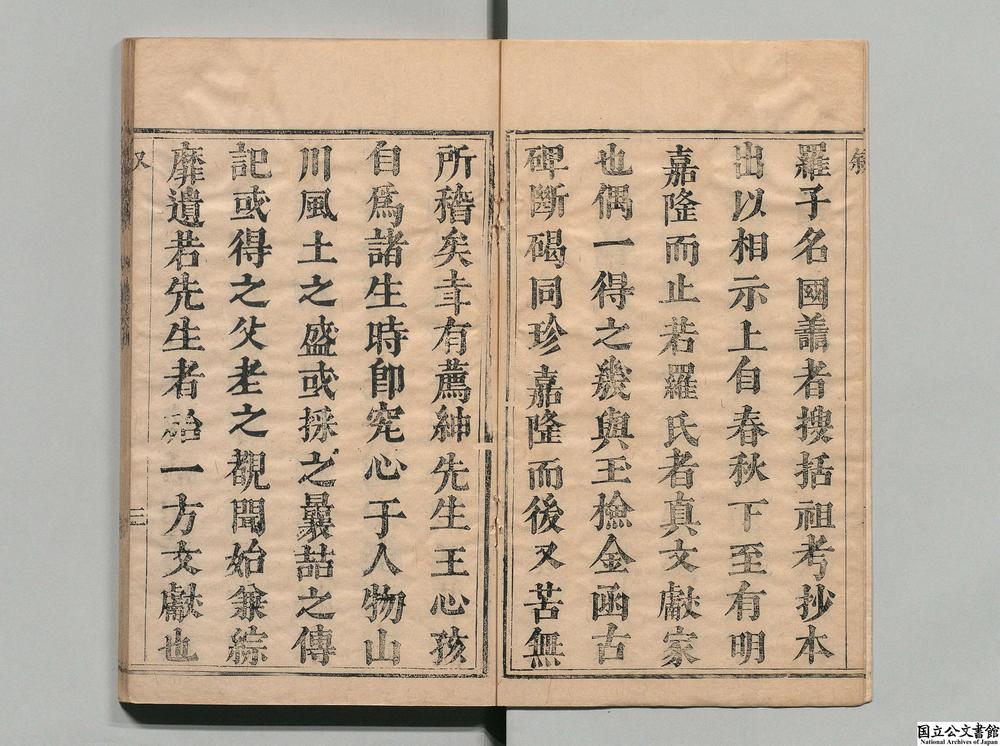 羅子名國譱者搜括祖考抄本
出以相示上自春秋下至有明
嘉隆而止若羅氏者真文獻家
也偶一得之幾與玉檢金函古
碑斷碣同珍嘉隆而後又苦無
所稽矣幸有薦紳先生王心孩
自爲諸生時卽究心于人物山
川風土之盛或採之曩喆之傳
記或得之父老之覩聞始兼綜
靡遺若先生者殆一方文獻也
国立公文書館
National Archives of Japan